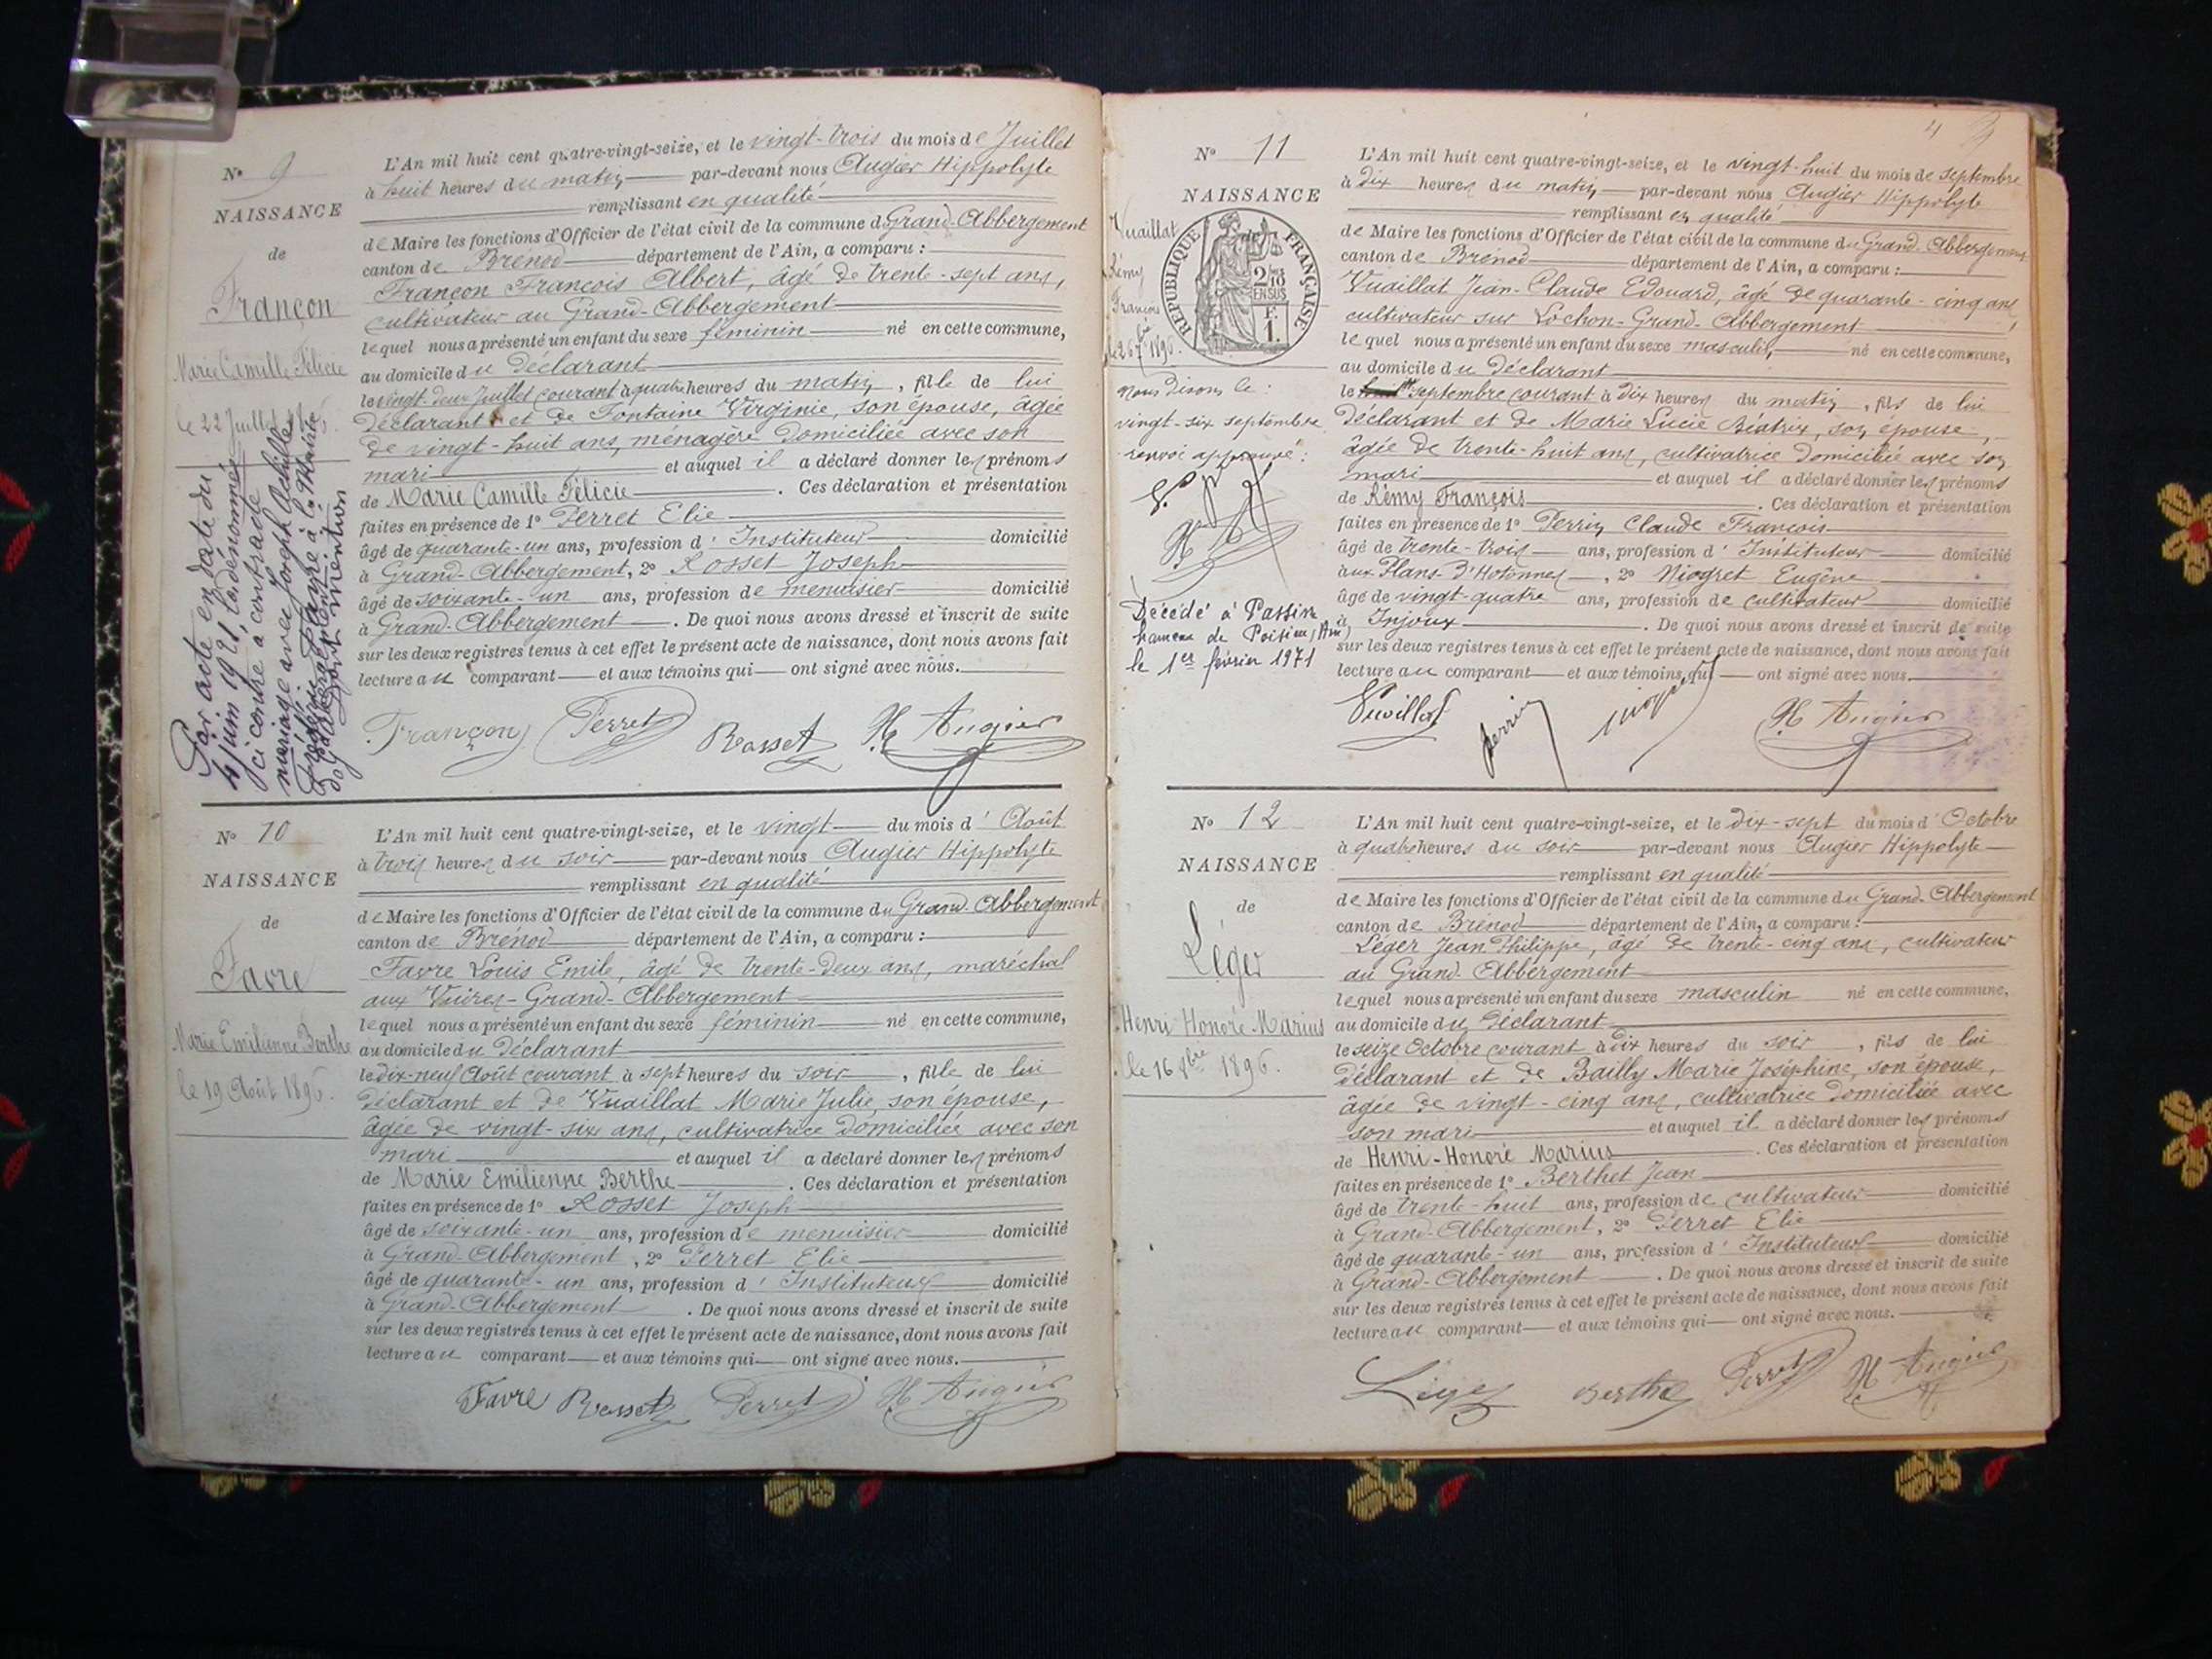 N° 9
NAISSANCE
de
Françon
Marie Camille Félicie
le 22 Juillet
Par acte en date du
4 juin 1921, la dénommée
ci contre a contracté
mariage avec Joseph Achille
dont mention
L'An mil huit cent quatre-vingt-seize, et le vingt-trois du mois de Juillet
à huit heures du matin par-devant nous Augier Hippolyte
remplissant en qualité
de Maire les fonctions d'Officier de l'état civil de la commune d Grand-Abbergement
canton de Brénod département de l'Ain, a comparu :
Françon François Albert, âgé de trente-sept ans,
cultivateur au Grand-Abbergement
lequel nous a présenté un enfant du sexe féminin né en cette commune,
au domicile du déclarant
le vingt-deux Juillet courant à quatre heures du matin, fille de lui
déclarant et de Fontaine Virginie, son épouse, âgée
de vingt-huit ans, ménagère domiciliée avec son
mari et auquel il a déclaré donner les prénoms
de Marie Camille Félicie. Ces déclaration et présentation
faites en présence de 1° Perret Elie
âgé de quarante-un ans, profession d'Instituteur domicilié
à Grand-Abbergement, 2° Rosset Joseph
âgé de soixante-un ans, profession de menuisier domicilié
à Grand-Abbergement. De quoi nous avons dressé et inscrit de suite
sur les deux registres tenus à cet effet le présent acte de naissance, dont nous avons fait
lecture au comparant et aux témoins qui ont signé avec nous.
Françon Perret Rosset H Augier
N° 10
NAISSANCE
de
Favre
Marie Emilienne Berthe
le 19 Août 1896.
L'An mil huit cent quatre-vingt-seize, et le vingt du mois d'Août
à trois heures du soir par-devant nous Augier Hippolyte
remplissant en qualité
de Maire les fonctions d'Officier de l'état civil de la commune du Grand-Abbergement
canton de Brénod département de l'Ain, a comparu :
Favre Louis Emile, âgé de trente-deux ans, maréchal
aux Vuires-Grand-Abbergement
lequel nous a présenté un enfant du sexe féminin né en cette commune,
au domicile du déclarant
le dix-neuf Août courant à sept heures du soir, fille de lui
déclarant et de Vuaillat Marie Julie, son épouse,
âgée de vingt-six ans, cultivatrice domiciliée avec son
mari et auquel il a déclaré donner les prénoms
de Marie Emilienne Berthe. Ces déclaration et présentation
faites en présence de 1° Rosset Joseph
âgé de soixante-un ans, profession de menuisier domicilié
à Grand-Abbergement, 2° Perret Elie
âgé de quarante-un ans, profession d'Instituteur domicilié
à Grand-Abbergement. De quoi nous avons dressé et inscrit de suite
sur les deux registres tenus à cet effet le présent acte de naissance, dont nous avons fait
lecture au comparant et aux témoins qui ont signé avec nous.
Favre Rosset Perret H Augier
4
N° 11
NAISSANCE
RÉPUBLIQUE FRANÇAISE
2/10 EN SUS
F. 1.
Vuaillat
Rémy
François
le 26 7bre 1896.
nous disons le :
vingt-six septembre
renvoi approuvé :
Décédé à Passin
hameau de Poisieu (Ain)
le 1er février 1971
L'An mil huit cent quatre-vingt-seize, et le vingt-huit du mois de Septembre
à dix heures du matin par-devant nous Augier Hippolyte
remplissant en qualité
de Maire les fonctions d'Officier de l'état civil de la commune du Grand-Abbergement
canton de Brénod département de l'Ain, a comparu :
Vuaillat Jean-Claude Edouard, âgé de quarante-cinq ans,
cultivateur sur Lochon-Grand-Abbergement
lequel nous a présenté un enfant du sexe masculin, né en cette commune,
au domicile du déclarant
le septembre courant à dix heures du matin, fils de lui
déclarant et de Marie Lucie Béatrix, son épouse,
âgée de trente-huit ans, cultivatrice domiciliée avec son
mari et auquel il a déclaré donner les prénoms
de Rémy François. Ces déclaration et présentation
faites en présence de 1° Perrin Claude François
âgé de trente-trois ans, profession d'Instituteur domicilié
aux Plans-d'Hotonnes, 2° Niogret Eugène
âgé de vingt-quatre ans, profession de cultivateur domicilié
à Injoux. De quoi nous avons dressé et inscrit de suite
sur les deux registres tenus à cet effet le présent acte de naissance, dont nous avons fait
lecture au comparant et aux témoins qui ont signé avec nous.
Perrin H Augier
N° 12
NAISSANCE
de
Léger
Henri Honoré Marius
le 16 8bre 1896.
L'An mil huit cent quatre-vingt-seize, et le dix-sept du mois d'Octobre
à quatre heures du soir par-devant nous Augier Hippolyte
remplissant en qualité
de Maire les fonctions d'Officier de l'état civil de la commune du Grand-Abbergement
canton de Brénod département de l'Ain, a comparu :
Léger Jean Philippe, âgé de trente-cinq ans, cultivateur
au Grand-Abbergement
lequel nous a présenté un enfant du sexe masculin né en cette commune,
au domicile du déclarant
le seize Octobre courant à dix heures du soir, fils de lui
déclarant et de Bailly Marie Joséphine, son épouse,
âgée de vingt-cinq ans, cultivatrice domiciliée avec
son mari et auquel il a déclaré donner les prénoms
de Henri-Honoré Marius. Ces déclaration et présentation
faites en présence de 1° Berthet Jean
âgé de trente-huit ans, profession de cultivateur domicilié
à Grand-Abbergement, 2° Perret Elie
âgé de quarante-un ans, profession d'Instituteur domicilié
à Grand-Abbergement. De quoi nous avons dressé et inscrit de suite
sur les deux registres tenus à cet effet le présent acte de naissance, dont nous avons fait
lecture au comparant et aux témoins qui ont signé avec nous.
Léger Berthet Perret H Augier